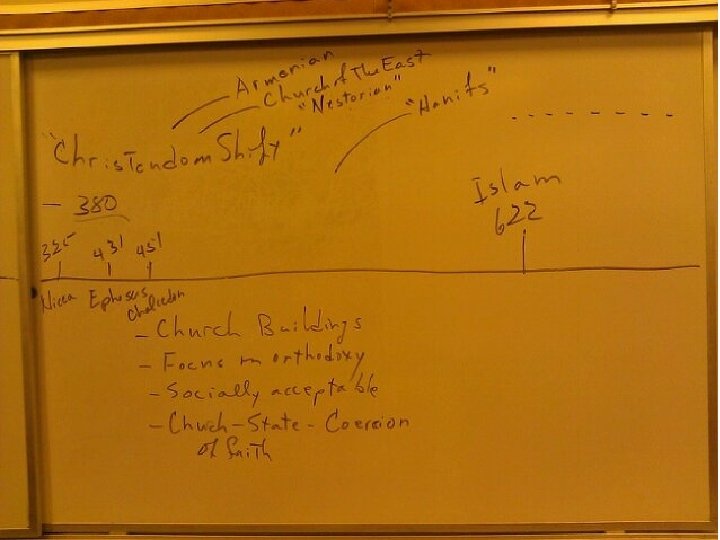 Armenian
Church of The East
"Nestorian"
"Hanifs"
"Christendom Shift"
- 380
Islam
622
325 431 451
Nicea Ephesus Chalcedon
- Church Buildings
- Focus on orthodoxy
- Socially acceptable
- Church-State-Coersion
of faith